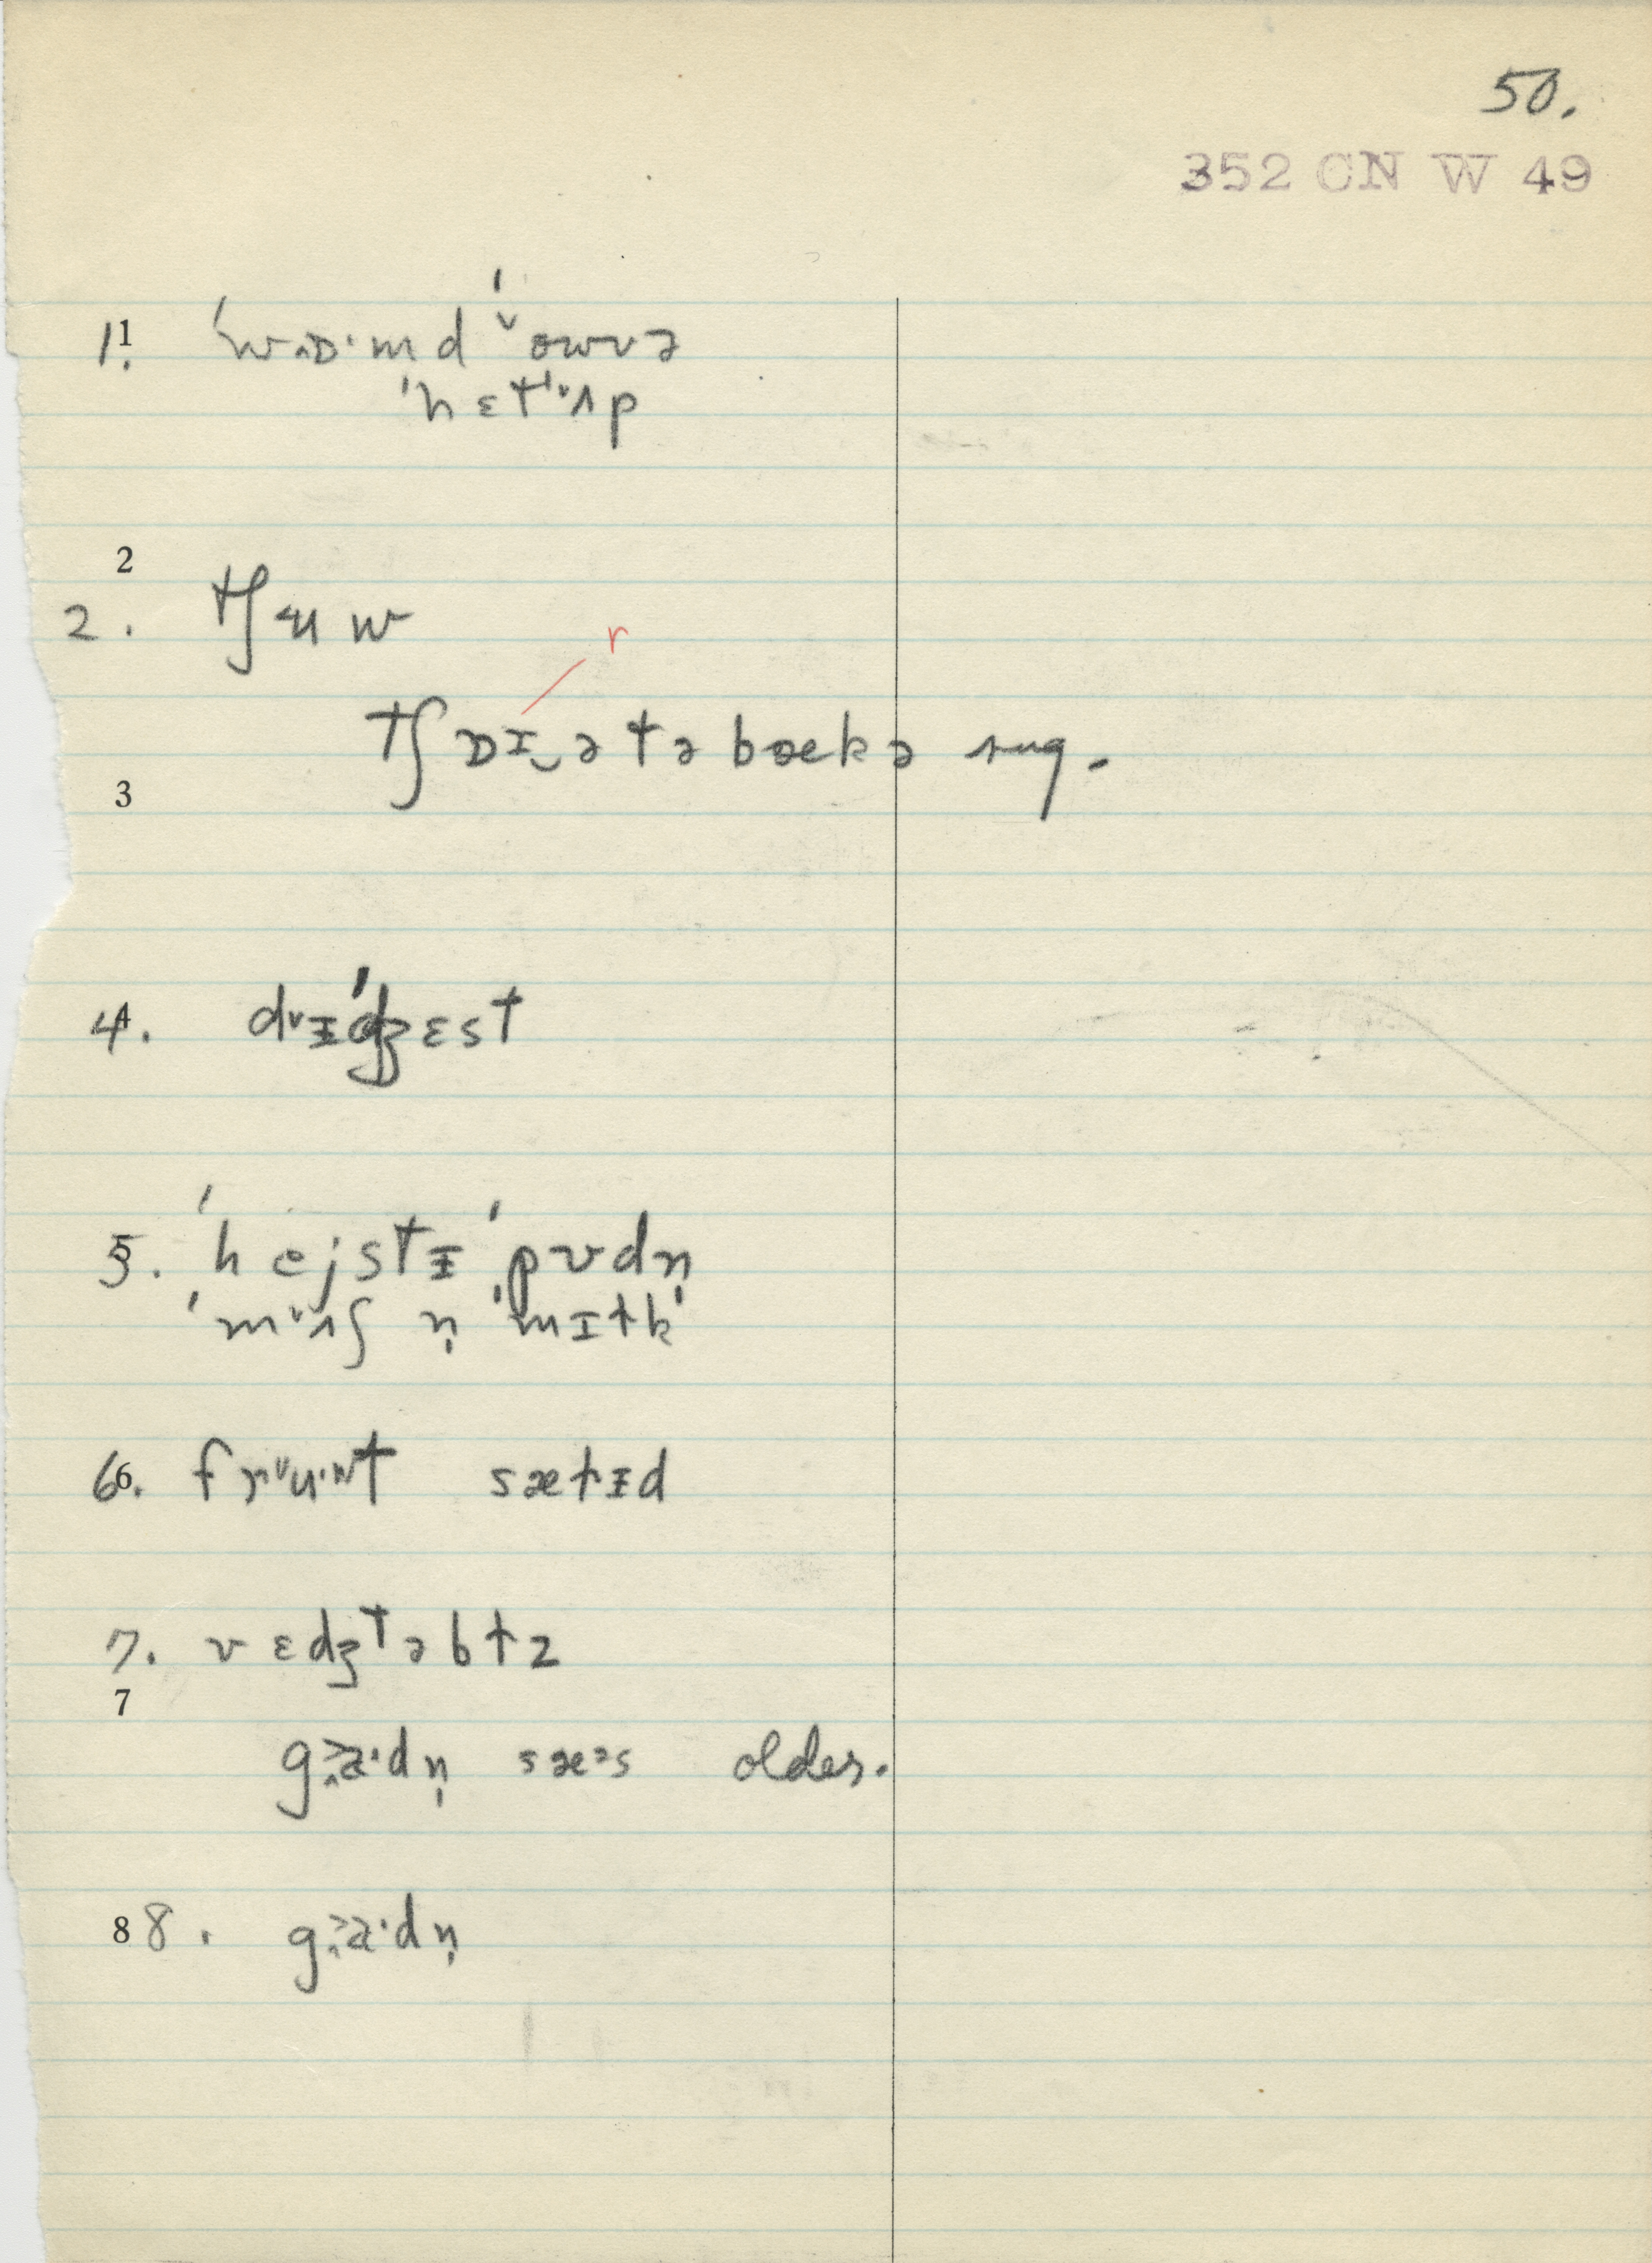 50.
352 CN W 49
1. ˈwɒ·md ˈowvə
ˈhɛt ˈʌp
2
2. tʃʉw
r
tʃɒɪ‿ə tə bækə sug.
3
4. dɨˈdʒɛst
5. ˈhejstɨ ˈpʊdn̩
ˈmʌʃ n̩ ˈmɪɫk
6. fru·ʷt sæɫɨd
7. vɛdʒtəbɫz
7
ga·dn̩ sæᵊs older.
8 8. ga·dn̩